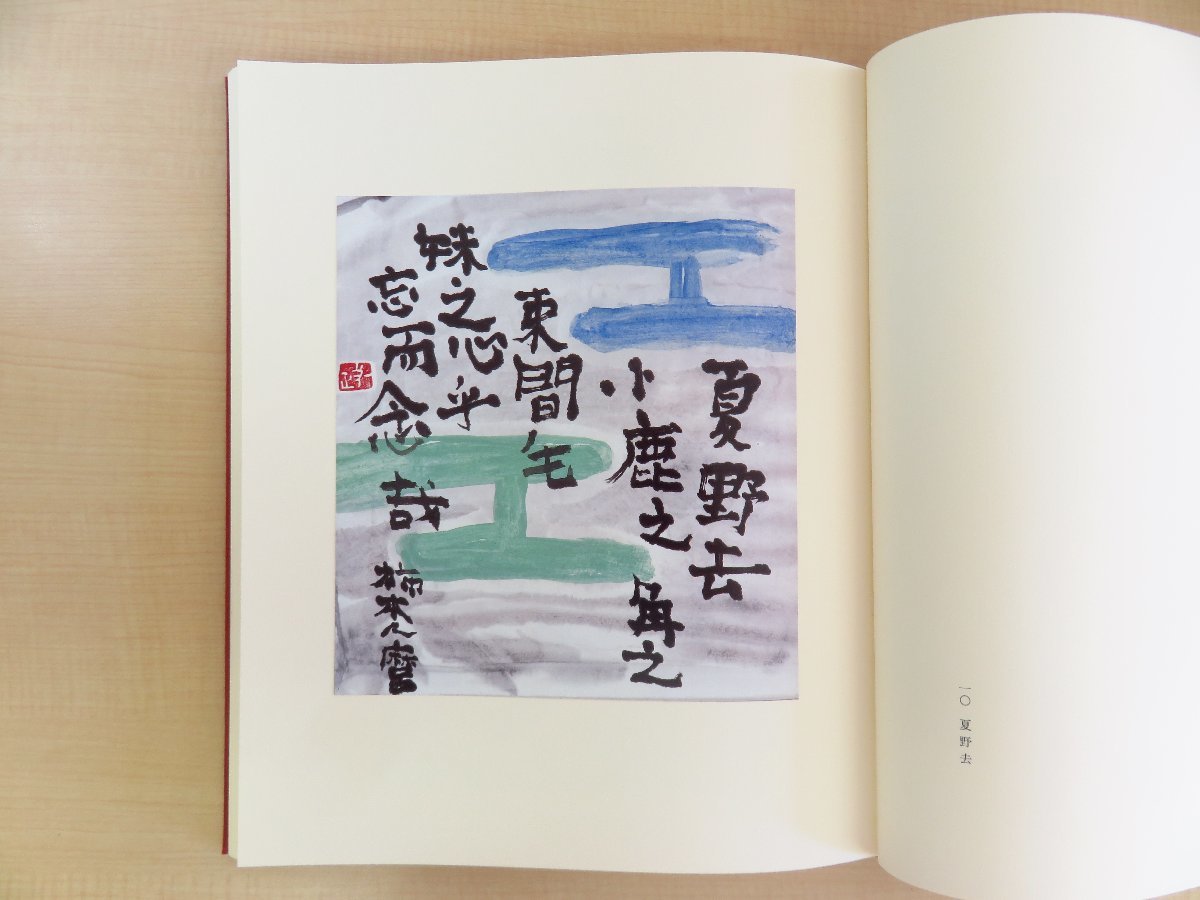 一〇 夏野去
夏野去
小鹿之角之
束間毛
妹之心乎
忘而念哉
柿本人麿